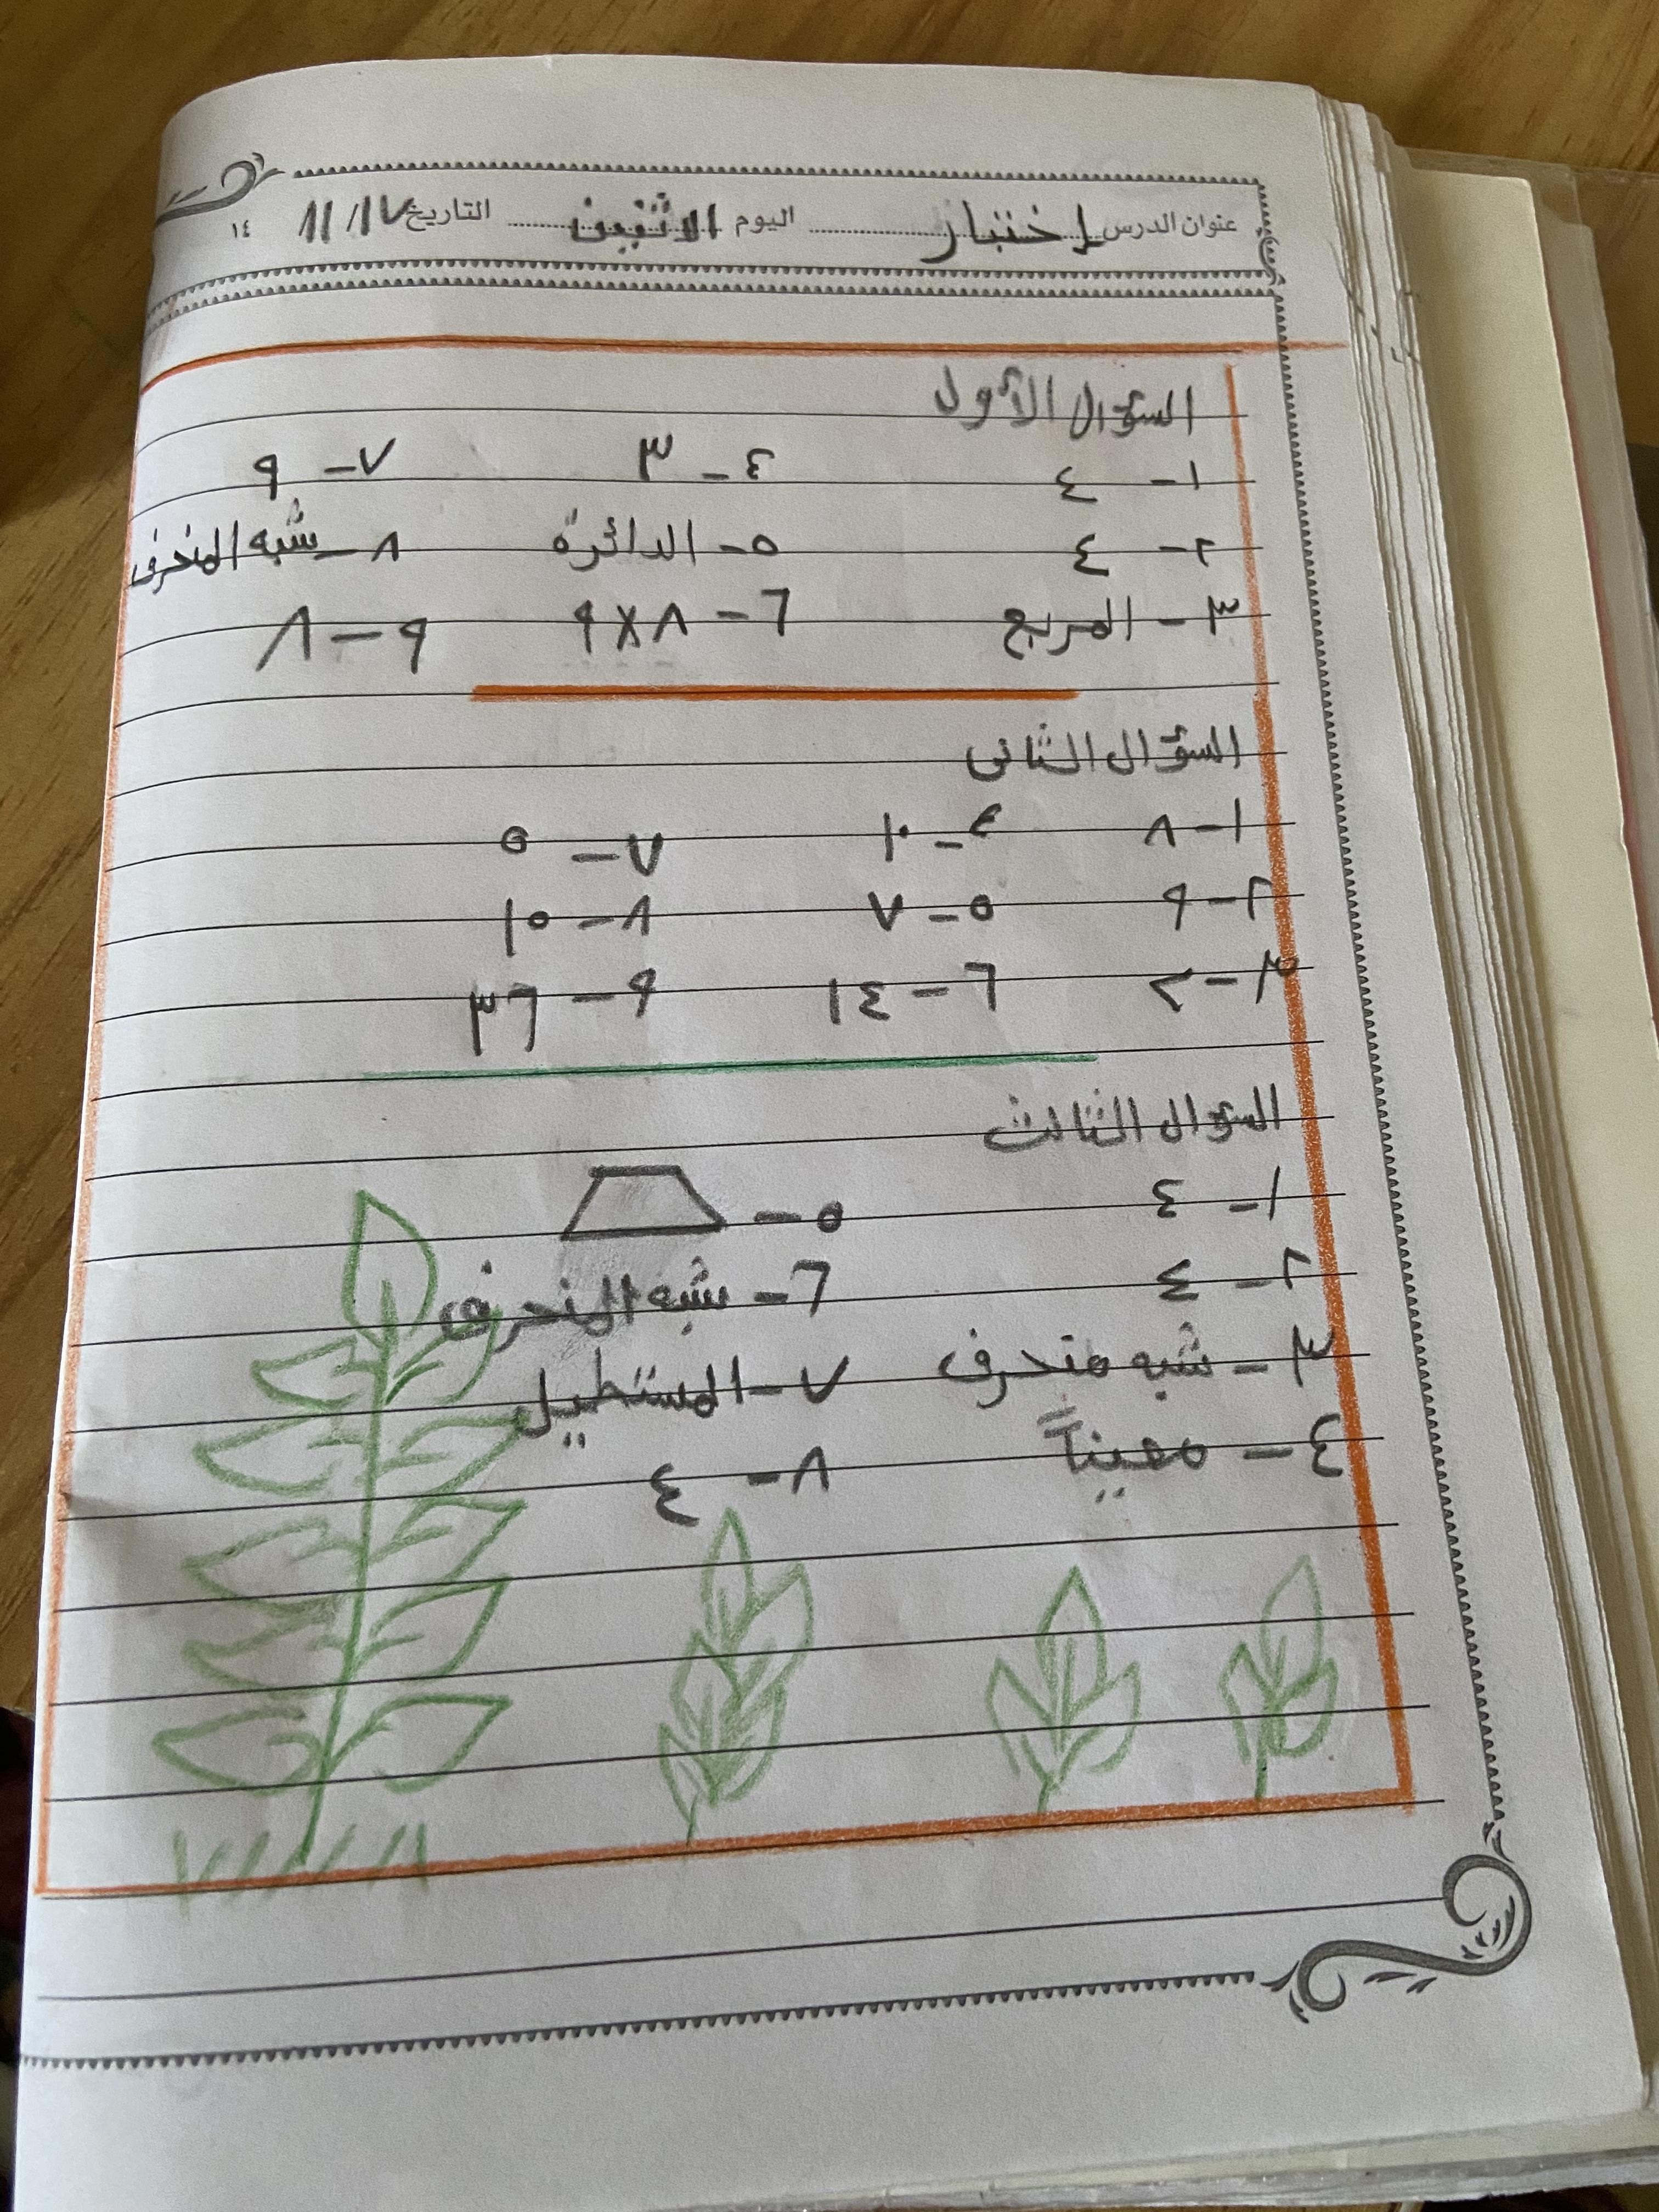 عنوان الدرس إختبار اليوم الاثنين التاريخ ١١/١٧ ١٤
السؤال الأول
١- ٤ ٤- ٣ ٧- ٩
٢- ٤ ٥- الدائرة ٨- شبه المنحرف
٣- المربع ٦- ٨×٩ ٩- ٨
السؤال الثانى
١- ٨ ٤- ١٠ ٧- ٥
٢- ٩ ٥- ٧ ٨- ١٥
٣- ٢ ٦- ١٤ ٩- ٣٦
السؤال الثالث
١- ٤ ٥-
٢- ٤ ٦- شبه المنحرف
٣- شبه منحرف ٧- المستطيل
٤- معيناً ٨- ٤